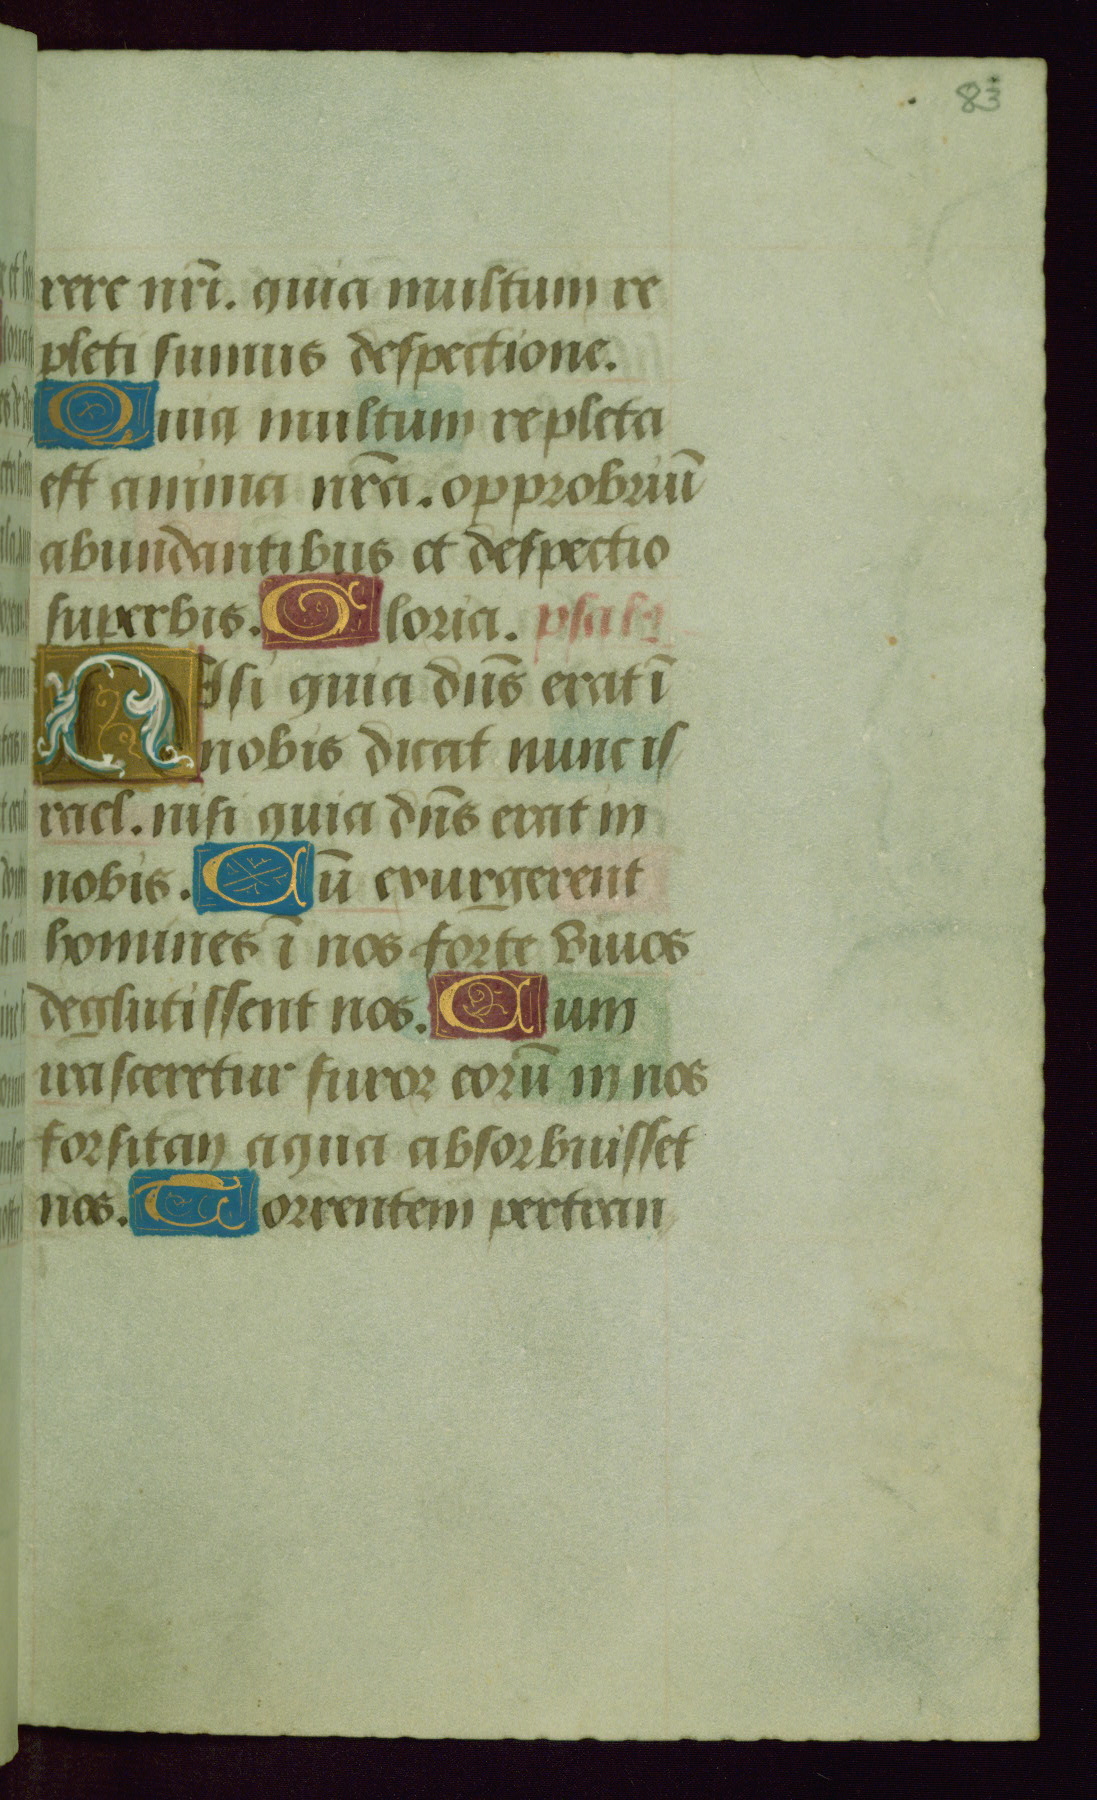 83
rere nr̄i. quia multum re
pleti sumus despectione.
Quia multum repleta
est anima nr̄a. opprobriū
abundantibus et despectio
superbis. Gloria. psal9
Nisi quia dn̄s erat ī
nobis dicat nunc is
rael. nisi quia dn̄s erat in
nobis. Cū exurgerent
homines ī nos forte vivos
deglutissent nos. Cum
irasceretur furor eorū in nos
forsitan aqua absorbuisset
nos. Torrentem pertran